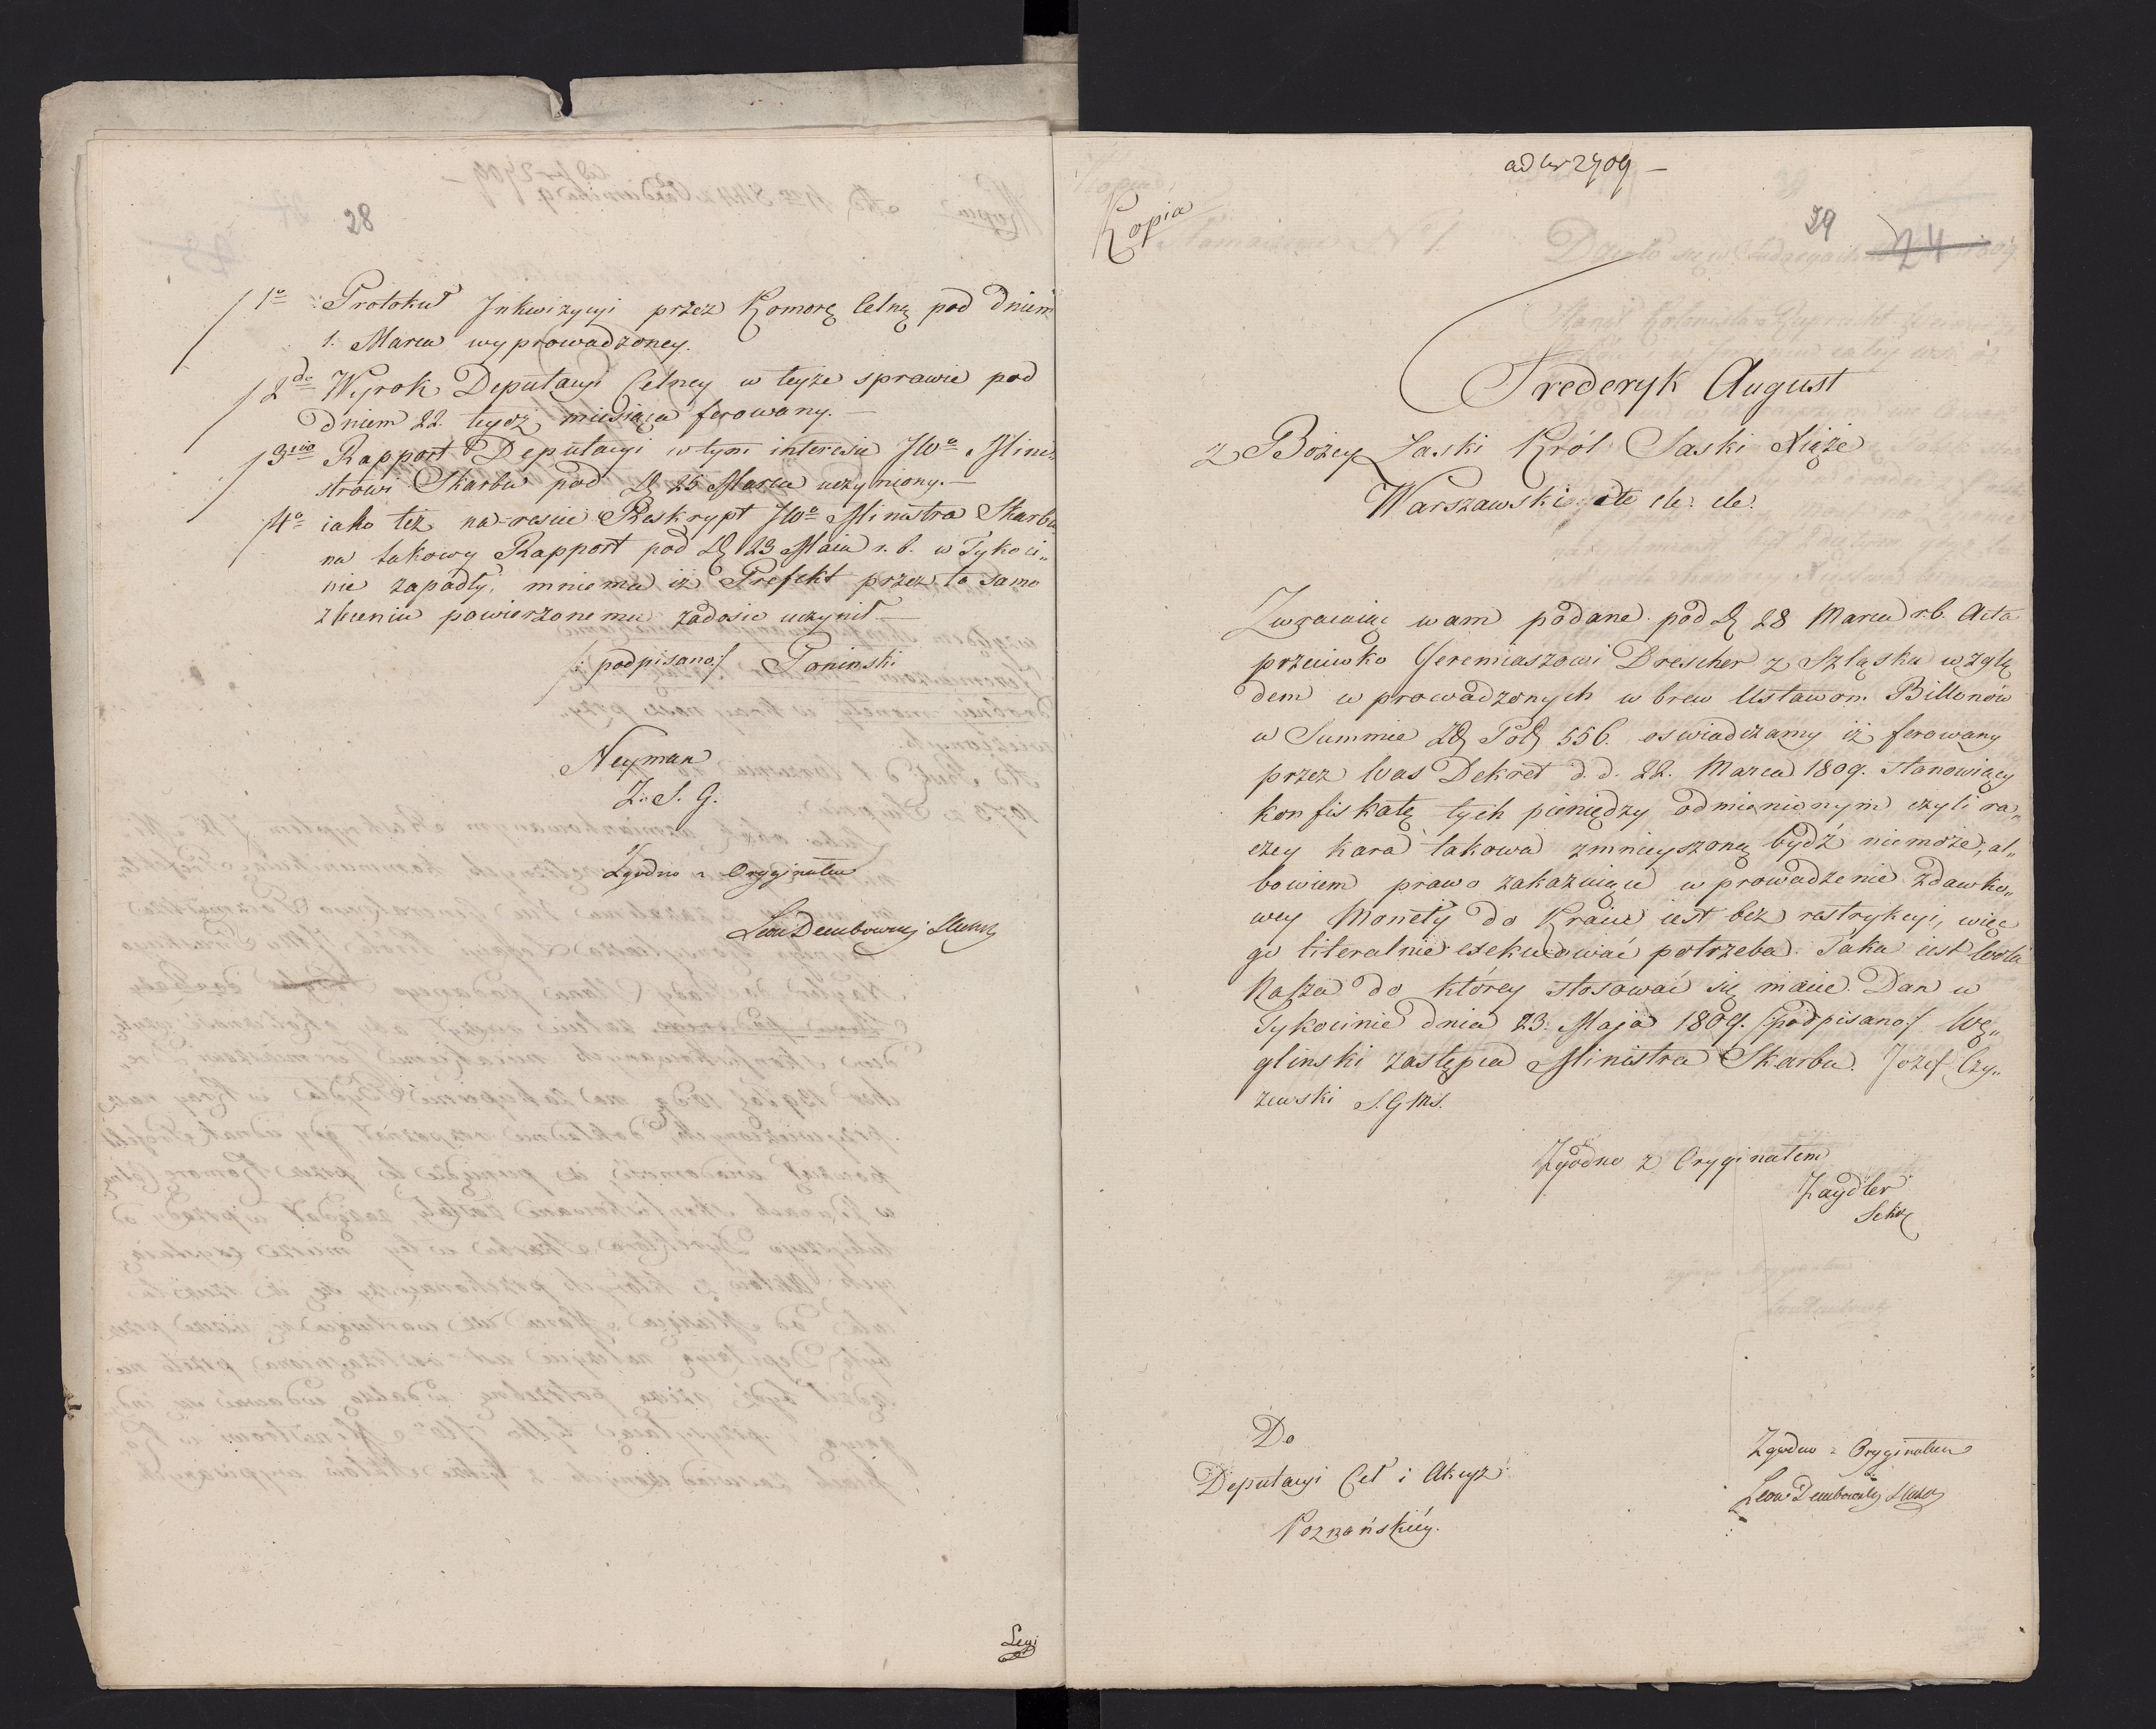 28
1º Protokuł Inkwizycyi przez Komorę Celną pod dniem
1. Marca wyprowadzoney.
2do Wyrok Deputacyi Celney w teyże sprawie pod
dniem 22. tegoż miesiąca ferowany. —
3tio Rapport Deputacyi w tym interesie JWº Mini-
strowi Skarbu pod d. 25 Marca uczyniony. —
4º iako też na-resscie Reskrypt JWº Ministra Skarbu
na takowy Rapport pod d. 23 Maia r. b. w Tykoci„
nie zapadły, mniema iż Prefekt przez to samo
zleceniu powierzonemu zadosić uczynił. —
/: podpisano :/ Poninski
Neyman
Z. S. G.
Zgodno z Oryginałem
Leon Dembowski
Legi
ad Nr 2709 —
Kopia
29
24
Frederyk August
z Bożey Łaski Król Saski Xiąże
Warszawski etc etc: etc:
Zwracaiąc wam podane pod d. 28 Marca r. b. Acta
przeciwko Jeremiaszowi Drescher z Szląska wzglę
dem wprowadzonych w brew Ustawom Billonów
w Summie Zł. Pol. 556. oswiadczamy iż ferowany
przez Was Dekret d. d. 22. Marca 1809. stanowiący
konfiskatę tych pieniędzy odmienionym czyli ra„
czey kara takowa zmnieyszoną bydź niemoże, al„
bowiem prawo zakazuiące wprowadzenie zdawko„
wey Monety do Kraiu iest bez restrykcyi, więc
go literalnie exekwować potrzeba. Taka iest Wola
Nasza do którey stosować się macie. Dan w
Tykocinie dnia 23. Maja 1809. /:podpisano:/ Wę„
glinski zastępca Ministra Skarbu. Jozef Czy„
zewski S. G. M. S.
Zgodno z Oryginałem
Zaydler
Sekr.
Do
Deputacyi Ceł i Akcyz
Poznańskiéy.
Zgodno z Oryginałem
Leon Dembowski